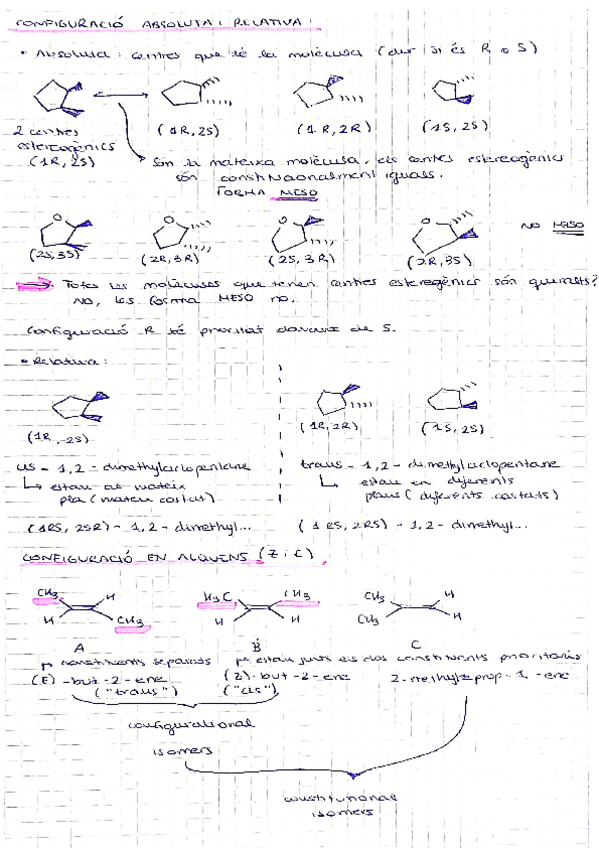 CONFIGURACIÓ ABSOLUTA I RELATIVA:
• Absoluta: centres que té la molècula (dir si és R o S)
2 centres
estereogènics
(1R, 2S)
(1R, 2S)
(1R, 2R)
(1S, 2S)
Són la mateixa molècula, els centes estereogènics
són constitucionalment iguals.
FORMA MESO
O
O
O
O
NO MESO
(2S, 3S)
(2R, 3R)
(2S, 3R)
(2R, 3S)
Totes les molècules que tenen centres estereogènics són quirals?
NO, les forma MESO no.
Configuració R té prioritat davant de S.
• Relativa:
(1R, 2S)
(1R, 2R)
(1S, 2S)
cis - 1,2 - dimethylciclopentane
↳ estan al mateix
pla (mateix costat)
trans - 1,2 - dimethylciclopentane
↳ estan en diferents
plans (diferents costats)
(1RS, 2SR) - 1,2 - dimethyl...
(1RS, 2RS) - 1,2 - dimethyl...
CONFIGURACIÓ EN ALQUENS (Z i E)
CH3 H
H CH3
H3C CH3
H H
CH3 H
CH3 H
A
B
C
constituents separats
estan junts els dos constituents prioritaris
(E) - but - 2 - ene
("trans")
(Z) - but - 2 - ene
("cis")
2 - methylprop - 1 - ene
configurational
isomers
constitutional
isomers